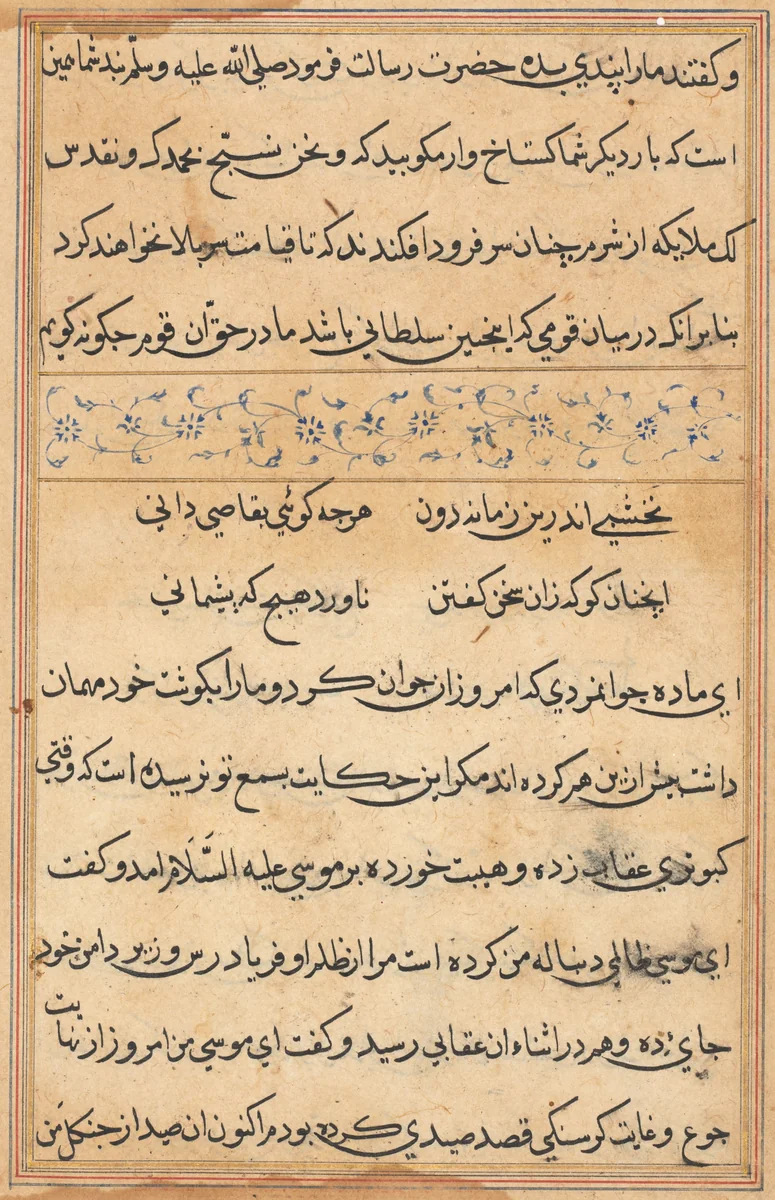 و کفتند مارا پندي بده حضرت رسالت فرمود صلي الله عليه وسلّم پند شما همين
است که بار ديکر شما کستاخ وار مکوييد که ونحن نسبّح بحمدک ونقدس
لک ملايکه از شرم چنان سر فرود افکندند که تا قيامت سر بالا نخواهند کرد
بنا بر انکه در ميان قومي که اينچنين سلطاني باشد ما در حقّ ان قوم جکونه کويم
نخشبي اندرين زمانه دون هرجه کوئي بقاصي داني
اينچنان کو که زان سخن کفتن ناورد هيچ که پشيماني
اي ماده جوانمردي که امروز ان جوان کرد و مارا بکوشت خود مهمان
داشت پيش ازين هم کرده اند مکر اين حکايت بسمع تو نرسيده است که وقتي
کبوتري عقاب زده و هيبت خورده بر موسي عليه السَّلَام امد و کفت
اي موسي ظالمي دنباله من کرده است مرا از ظلم او فرياد رس و زير دامن خود
جاي ده و هم در اثناء ان عقابي رسيد و کفت اي موسي من امروز از نهايت
جوع و غايت کرسنکي قصد صيدي کرده بودم اکنون ان صيد از جنکل من